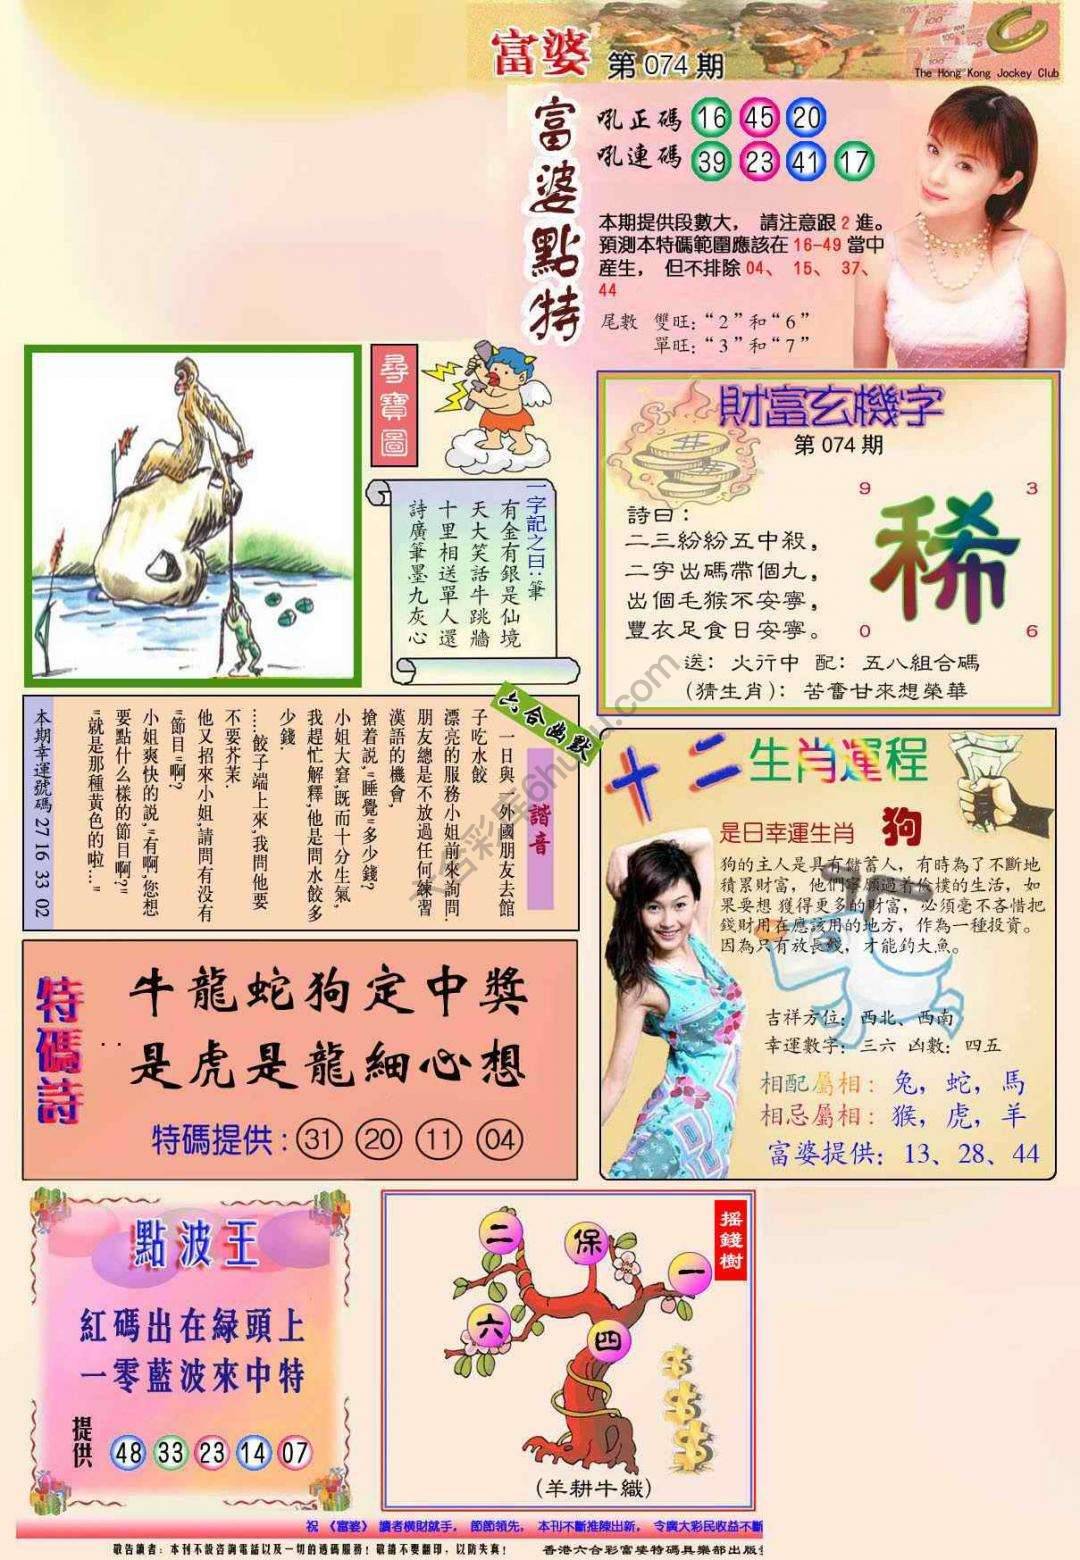 富婆 第 074 期
The Hong Kong Jockey Club
富婆點特
吼正碼 16 45 20
吼連碼 39 23 41 17
本期提供段數大， 請注意跟 2 進。
預測本特碼範圍應該在 16-49 當中
産生， 但不排除 04、 15、 37、
44
尾數 雙旺：“2”和“6”
單旺：“3”和“7”
尋寶圖
一字記之曰：筆
有金有銀是仙境
天大笑話牛跳牆
十里相送單人還
詩廣筆墨九灰心
財富玄機字
第 074 期
詩曰：
二三紛紛五中殺，
二字出碼帶個九，
出個毛猴不安寧，
豐衣足食日安寧。
9 3
稀
0 6
送：火行中 配：五八組合碼
(猜生肖)：苦奮甘來想榮華
六合幽默
諧音
一日與一外國朋友去館
子吃水餃
漂亮的服務小姐前來詢問.
朋友總是不放過任何練習
漢語的機會,
搶着説,"睡覺"多少錢?
小姐大窘,既而十分生氣,
我趕忙解釋,他是問水餃多
少錢
……餃子端上來,我問他要
不要芥茉.
他又招來小姐,請問有没有
"節目"啊?
小姐爽快的説,"有啊,您想
要點什么樣的節目啊?"
"就是那種黄色的啦..."
本期幸運號碼 27 16 33 02
十二生肖運程
是日幸運生肖 狗
狗的主人是具有儲蓄人，有時為了不斷地
積累財富，他們寧願過着儉樸的生活，如
果要想 獲得更多的財富，必須毫不吝惜把
錢財用在應該用的地方，作為一種投資。
因為只有放長綫，才能釣大魚。
吉祥方位：西北、西南
幸運數字：三六 凶數：四五
相配屬相：兔，蛇，馬
相忌屬相：猴，虎，羊
富婆提供：13、28、44
特碼詩
牛龍蛇狗定中獎
是虎是龍細心想
特碼提供：31 20 11 04
點波王
紅碼出在緑頭上
一零藍波來中特
提供 48 33 23 14 07
摇錢樹
二 保 一
六 四
(羊耕牛織)
祝 《富婆》 讀者橫財就手， 節節領先， 本刊不斷推陳出新， 令廣大彩民收益不斷
敬告讀者：本刊不設咨詢電話以及一切的透碼服務！敬請不要翻印，以防失真！
香港六合彩富婆特碼具樂部出版
六合彩库6huu.com